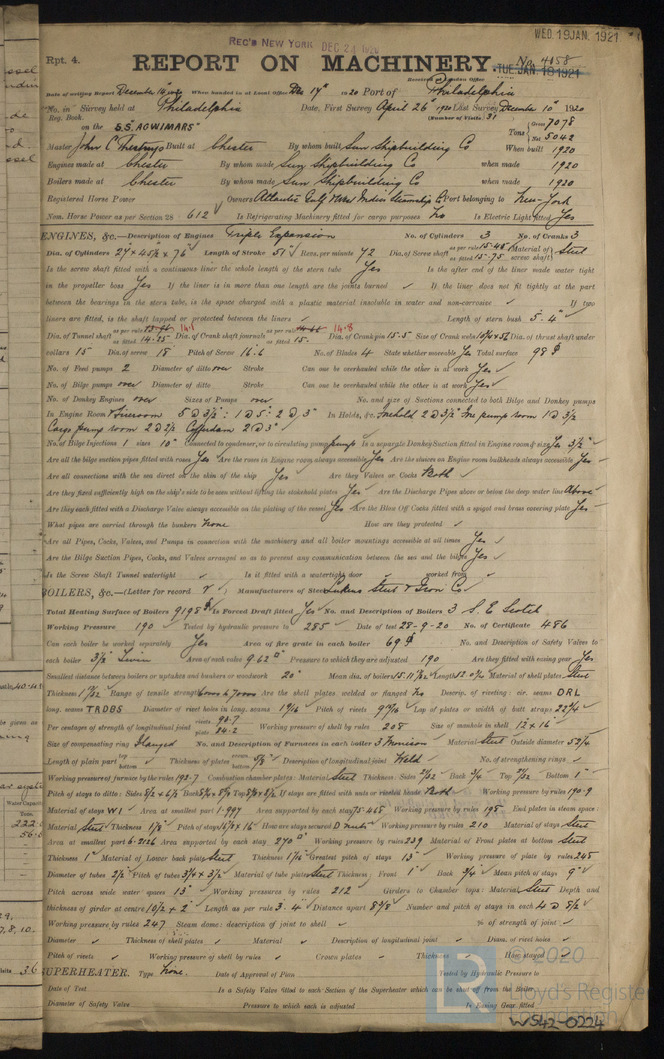 WED. 19 JAN. 1921
REC'D NEW YORK DEC 24 1920
Rpt. 4. REPORT ON MACHINERY. No. 4058
Received at London Office TUE. JAN. 18 1921
Date of writing Report December 14 1920 When handed in at Local Office Dec 17th 1920 Port of Philadelphia
No. in Survey held at Philadelphia Date, First Survey April 26th 1920 Last Survey December 10th 1920
Reg. Book. (Number of Visits 31
on the S.S. AGWIMARS" Tons { Gross 7078
Net 5042
Master John C Built at Chester By whom built Sun Shipbuilding Co When built 1920
Engines made at Chester By whom made Sun Shipbuilding Co when made 1920
Boilers made at Chester By whom made Sun Shipbuilding Co when made 1920
Registered Horse Power Owners Atlantic Gulf West Indies Steamship Co Port belonging to New-York
Nom. Horse Power as per Section 28 612 Is Refrigerating Machinery fitted for cargo purposes No Is Electric Light fitted Yes
ENGINES, &c.—Description of Engines Triple Expansion No. of Cylinders 3 No. of Cranks 3
Dia. of Cylinders 27 x 45½ x 76" Length of Stroke 51" Revs. per minute 72 Dia. of Screw shaft as per rule 15.45 as fitted 15.75 Material of screw shaft Steel
Is the screw shaft fitted with a continuous liner the whole length of the stern tube Yes Is the after end of the liner made water tight
in the propeller boss Yes If the liner is in more than one length are the joints burned ✓ If the liner does not fit tightly at the part
between the bearings in the stern tube, is the space charged with a plastic material insoluble in water and non-corrosive ✓ If two
liners are fitted, is the shaft lapped or protected between the liners ✓ Length of stern bush 5. 4"
Dia. of Tunnel shaft as per rule 14.1 as fitted 14.25 Dia. of Crank shaft journals as per rule 14.8 as fitted 15. Dia. of Crank pin 15.5 Size of Crank webs Dia. of thrust shaft under
collars 15 Dia. of screw 18 Pitch of Screw 16.6 No. of Blades 4 State whether moveable Yes Total surface 98
No. of Feed pumps 2 Diameter of ditto over Stroke Can one be overhauled while the other is at work Yes
No. of Bilge pumps over Diameter of ditto Stroke Can one be overhauled while the other is at work Yes
No. of Donkey Engines over Sizes of Pumps over No. and size of Suctions connected to both Bilge and Donkey pumps
In Engine Room & Fireroom 5 @ 3½" : 1 @ 5 : 2 @ 3" In Holds, &c. Forehold 2 @ 3½" Fore pump room 1 @ 3½
Cargo pump room 2 @ 2½ Cofferdam 2 @ 3"
No. of Bilge Injections 1 sizes 10" Connected to condenser, or to circulating pump pump Is a separate Donkey Suction fitted in Engine room & size Yes 3½"
Are all the bilge suction pipes fitted with roses Yes Are the roses in Engine room always accessible Yes Are the sluices on Engine room bulkheads always accessible Yes
Are all connections with the sea direct on the skin of the ship Yes Are they Valves or Cocks Both
Are they fixed sufficiently high on the ship's side to be seen without lifting the stokehold plates Yes Are the Discharge Pipes above or below the deep water line Above
Are they each fitted with a Discharge Valve always accessible on the plating of the vessel Yes Are the Blow Off Cocks fitted with a spigot and brass covering plate Yes
What pipes are carried through the bunkers None How are they protected ✓
Are all Pipes, Cocks, Valves, and Pumps in connection with the machinery and all boiler mountings accessible at all times Yes
Are the Bilge Suction Pipes, Cocks, and Valves arranged so as to prevent any communication between the sea and the bilges Yes
Is the Screw Shaft Tunnel watertight ✓ Is it fitted with a watertight door worked from ✓
BOILERS, &c.—(Letter for record ) Manufacturers of Steel Lukens Steel & Iron Co
Total Heating Surface of Boilers 9198 Is Forced Draft fitted Yes No. and Description of Boilers 3 S. E. Scotch
Working Pressure 190 Tested by hydraulic pressure to 285 Date of test 28-9-20 No. of Certificate 486
Can each boiler be worked separately Yes Area of fire grate in each boiler 69 No. and Description of Safety Valves to
each boiler 3½ Twin Area of each valve 9.62 Pressure to which they are adjusted 190 Are they fitted with easing gear Yes
Smallest distance between boilers or uptakes and bunkers or woodwork 20" Mean dia. of boilers Length Material of shell plates Steel
Thickness 1 17/32 Range of tensile strength Are the shell plates welded or flanged No Descrip. of riveting: cir. seams D.R.L
long. seams TRDBS Diameter of rivet holes in long. seams 1 9/16 Pitch of rivets Lap of plates or width of butt straps 22¼
Per centages of strength of longitudinal joint rivets 92.7 plate 84.2 Working pressure of shell by rules 208 Size of manhole in shell 12 x 16
Size of compensating ring Flanged No. and Description of Furnaces in each boiler 3 Morison Material Steel Outside diameter
Length of plain part top bottom Thickness of plates crown bottom 5/8 Description of longitudinal joint Weld No. of strengthening rings ✓
Working pressure of furnace by the rules 192.7 Combustion chamber plates: Material Steel Thickness: Sides Back Top Bottom 1"
Pitch of stays to ditto: Sides Back Top If stays are fitted with nuts or riveted heads Both Working pressure by rules 190.9
Material of stays W I Area at smallest part 1.997 Area supported by each stay 75.468 Working pressure by rules 198 End plates in steam space:
Material Steel Thickness 1 1/8 Pitch of stays How are stays secured D nuts Working pressure by rules 210 Material of stays Steel
Area at smallest part 6.2126 Area supported by each stay 270 Working pressure by rules 239 Material of Front plates at bottom Steel
Thickness 1" Material of Lower back plate Steel Thickness 1 1/16" Greatest pitch of stays 13" Working pressure of plate by rules 245
Diameter of tubes 2½" Pitch of tubes 3¾ x 3½ Material of tube plates Steel Thickness: Front 1" Back ¾" Mean pitch of stays 9"
Pitch across wide water spaces 13" Working pressures by rules 212 Girders to Chamber tops: Material Steel Depth and
thickness of girder at centre 10½ x 2" Length as per rule 3. 4" Distance apart Number and pitch of stays in each 4 @ 8½
Working pressure by rules 247 Steam dome: description of joint to shell ✓ % of strength of joint ✓
Diameter ✓ Thickness of shell plates ✓ Material ✓ Description of longitudinal joint ✓ Diam. of rivet holes ✓
Pitch of rivets ✓ Working pressure of shell by rules ✓ Crown plates ✓ Thickness ✓ How stayed ✓
SUPERHEATER. Type None. Date of Approval of Plan Tested by Hydraulic Pressure to
Date of Test Is a Safety Valve fitted to each Section of the Superheater which can be shut off from the Boiler
Diameter of Safety Valve Pressure to which each is adjusted Is Easing Gear fitted
© 2020
Lloyd's Register
Foundation
W542-0224